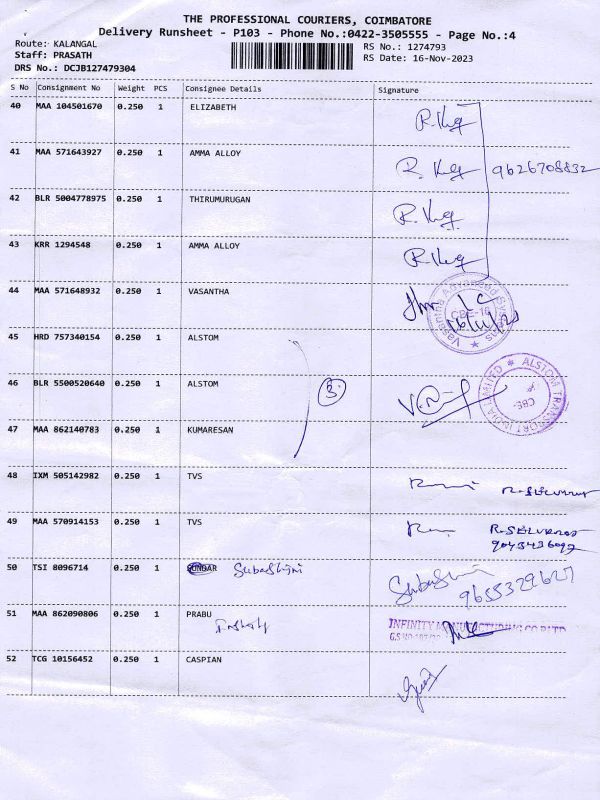 THE PROFESSIONAL COURIERS, COIMBATORE
Delivery Runsheet - P103 - Phone No.:0422-3505555 - Page No.:4
Route: KALANGAL RS No.: 1274793
Staff: PRASATH RS Date: 16-Nov-2023
DRS No.: DCJB127479304
S No Consignment No Weight PCS Consignee Details Signature
40 MAA 104501670 0.250 1 ELIZABETH
41 MAA 571643927 0.250 1 AMMA ALLOY 9626708832
42 BLR 5004778975 0.250 1 THIRUMURUGAN
43 KRR 1294548 0.250 1 AMMA ALLOY
44 MAA 571648932 0.250 1 VASANTHA
Vasantha Advanced Systems
45 HRD 757340154 0.250 1 ALSTOM
46 BLR 5500520640 0.250 1 ALSTOM 3
ALSTOM TRANSPORT INDIA LIMITED
CBE
47 MAA 862140783 0.250 1 KUMARESAN
48 IXM 505142982 0.250 1 TVS
49 MAA 570914153 0.250 1 TVS
50 TSI 8096714 0.250 1 SUNDAR Subashini
9655329627
51 MAA 862090806 0.250 1 PRABU
INFINITY MANUFACTURING CO P LTD
52 TCG 10156452 0.250 1 CASPIAN